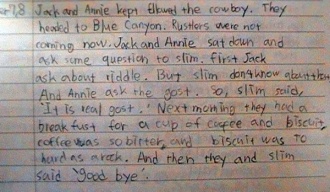 7,8 Jack and Annie kept the cowboy. They
headed to Blue Canyon. Rustlers were not
coming now. Jack and Annie sat down and
ask some question to slim. first Jack
ask about riddle. But slim don't know about
And Annie ask the gost. So, slim said,
"It is real gost." Next morning they had a
break fust for a cup of coffee and biscuit,
coffee was so bitter, and biscuit was to
hard as a rock. And then they and slim
said "Good bye".